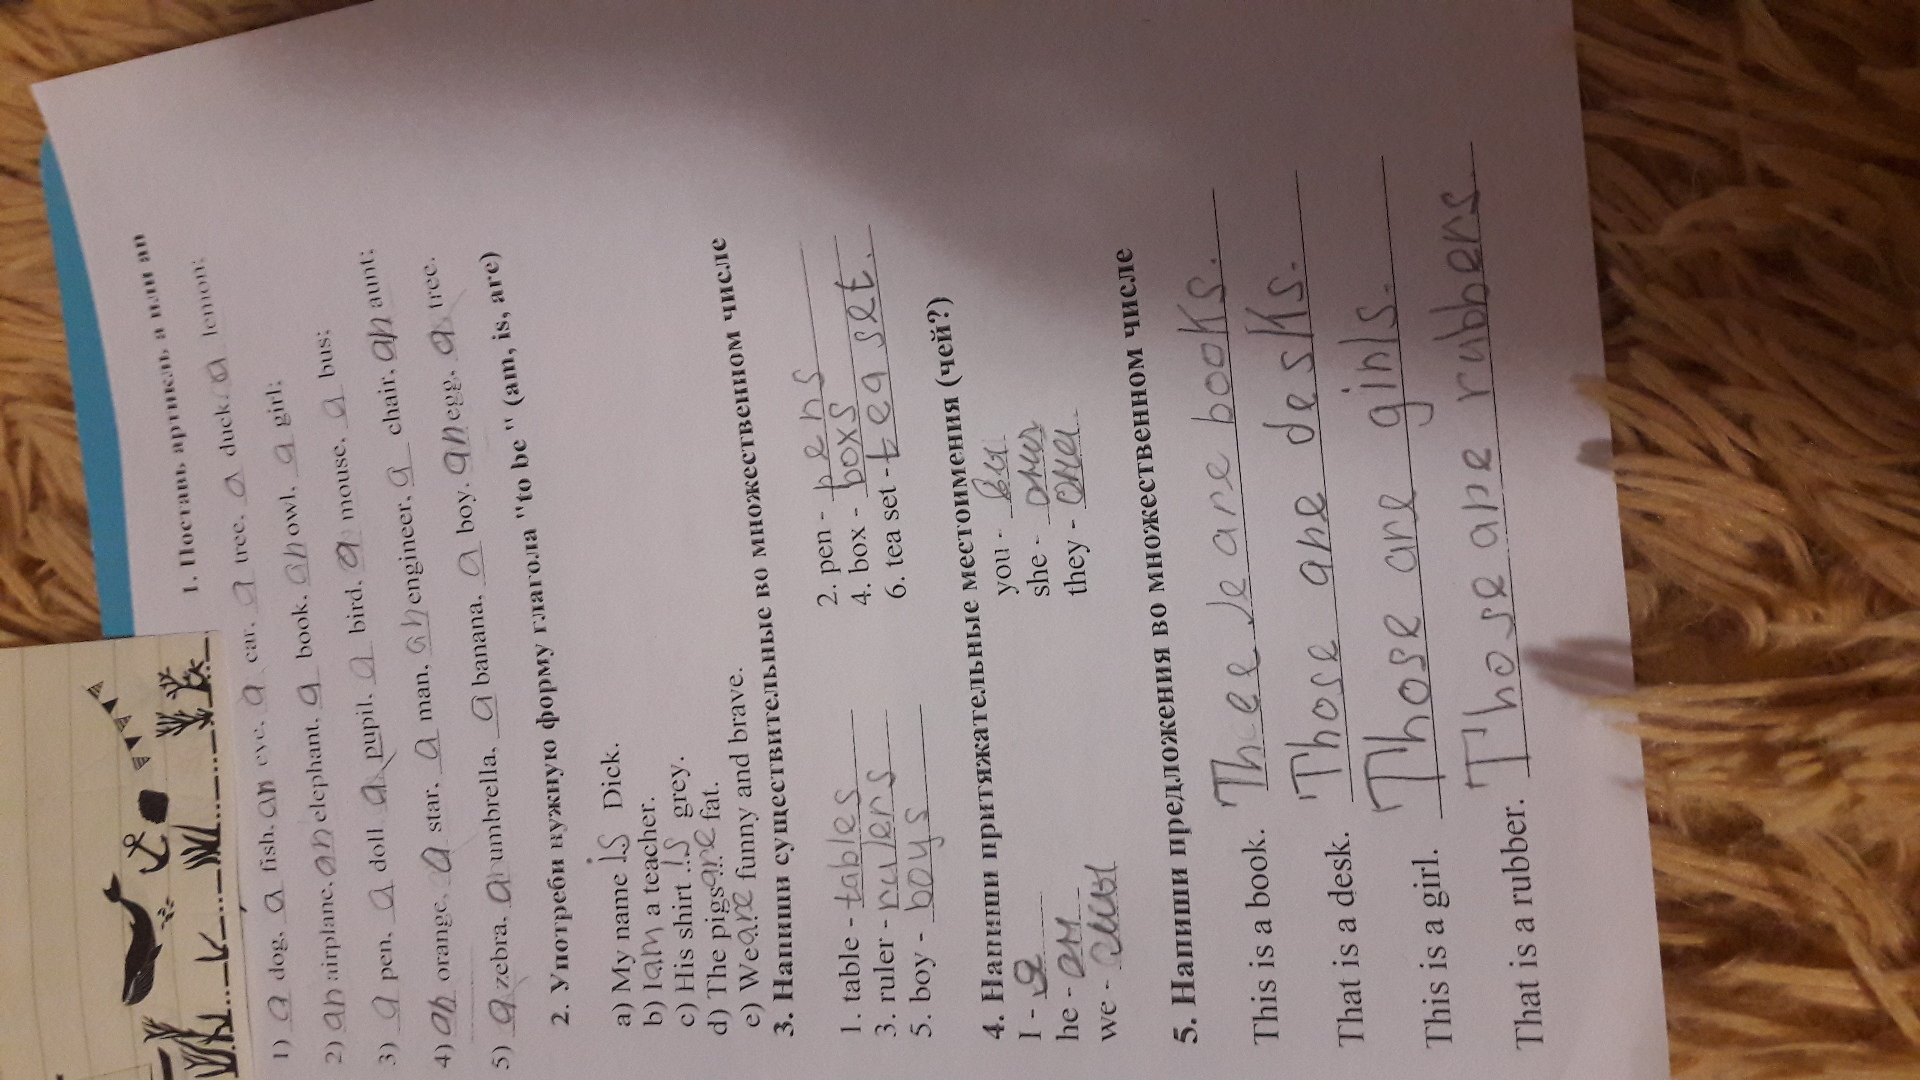 1. Поставь артикль a или an
1) a dog, a fish, an eye, a car, a tree, a duck, a lemon;
2) an airplane, an elephant, a book, an owl, a girl;
3) a pen, a doll a pupil, a bird, a mouse, a bus;
4) an orange, a star, a man, an engineer, a chair, an aunt;
5) a zebra, a umbrella, a banana, a boy, an egg, a tree.
2. Употреби нужную форму глагола "to be" (am, is, are)
a) My name is Dick.
b) I am a teacher.
c) His shirt is grey.
d) The pigs are fat.
e) We are funny and brave.
3. Напиши существительные во множественном числе
1. table - tables 2. pen - pens
3. ruler - rulers 4. box - boxs
5. boy - boys 6. tea set - tea set.
4. Напиши притяжательные местоимения (чей?)
I - я you - вы
he - он she - она
we - мы they -
5. Напиши предложения во множественном числе
This is a book. are books.
That is a desk. Those are desks.
This is a girl. Those are girls.
That is a rubber. Those are rubbers